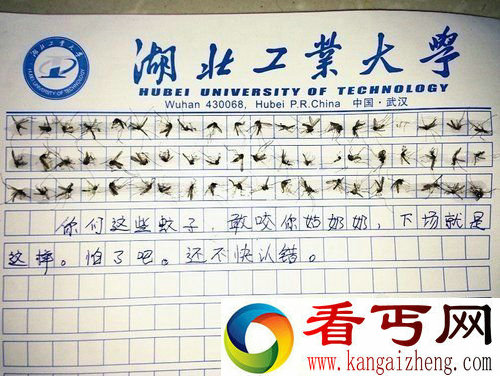 湖北工業大學
HUBEI UNIVERSITY OF TECHNOLOGY
Wuhan 430068, Hubei P.R.China 中国·武汉
你们这些蚊子，敢咬你姑奶奶，下场就是
这样。怕了吧。还不快认错。
看丐网
www.kangaizheng.com